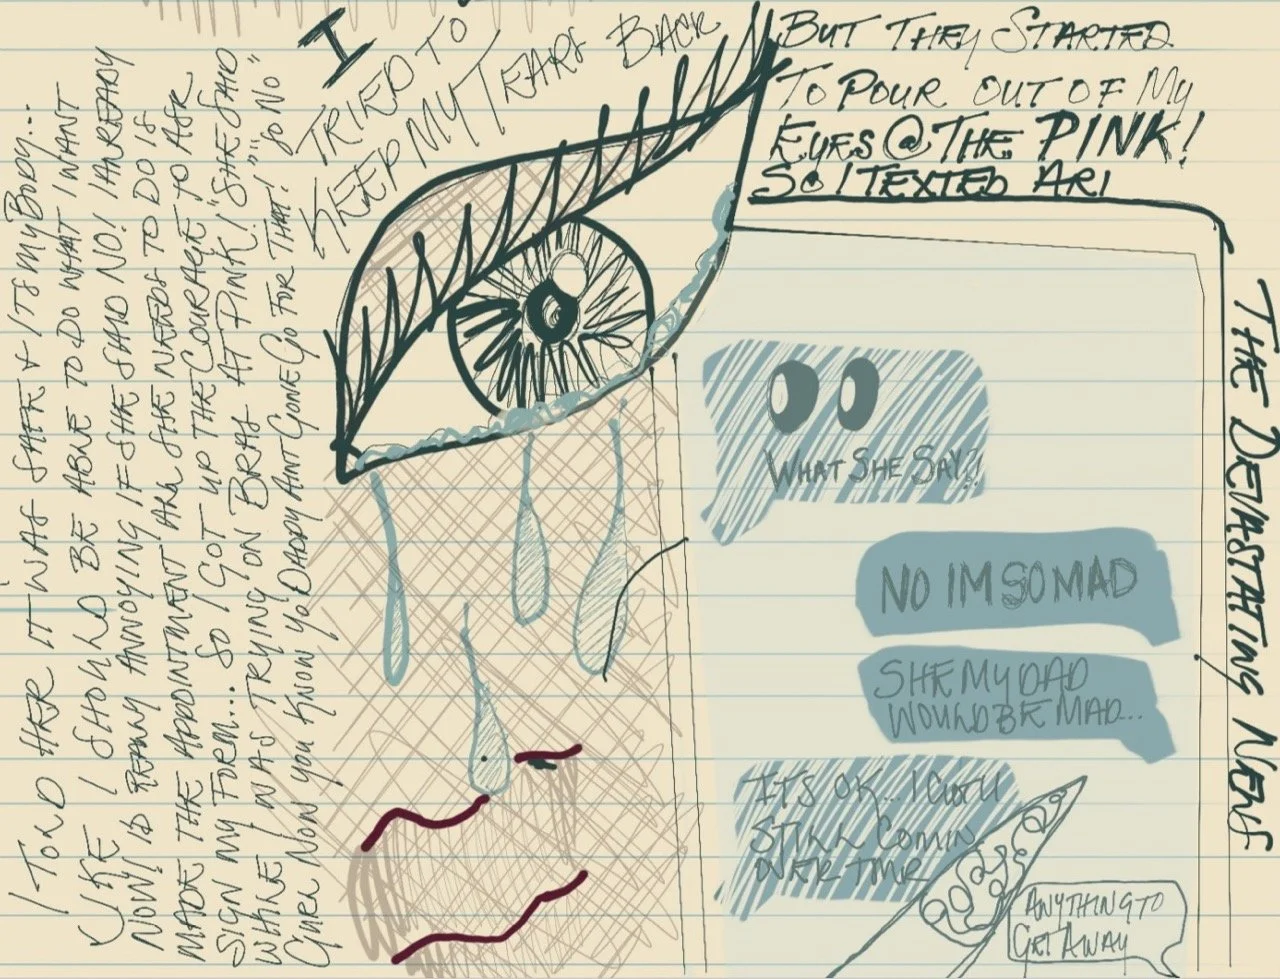 I TOLD HER IT WAS SAFE & ITS MY BODY...
LIKE I SHOULD BE ABLE TO DO WHAT I WANT
NOW! ID REALLY ANNOYING IF SHE SAID NO! I ALREADY
MADE THE APPOINTMENT ALL SHE NEEDS TO DO IS
SIGN MY FORM... SO I GOT UP THE COURAGE TO ASK
WHILE I WAS TRYING ON BRAS AT PINK! "SHE SAID
GURL NOW YOU KNOW YO DADDY AINT GONE GO FOR THAT!" "SO NO"
I
TRIED TO
KEEP MY TEARS BACK
BUT THEY STARTED
TO POUR OUT OF MY
EYES @ THE PINK!
SO I TEXTED ARI
WHAT SHE SAY?!
NO IM SO MAD
SHE MY DAD
WOULD BE MAD...
ITS OK... I CAN U
STILL COMIN
OVER TMR
ANYTHING TO
GET AWAY
THE DEVASTATING NEWS